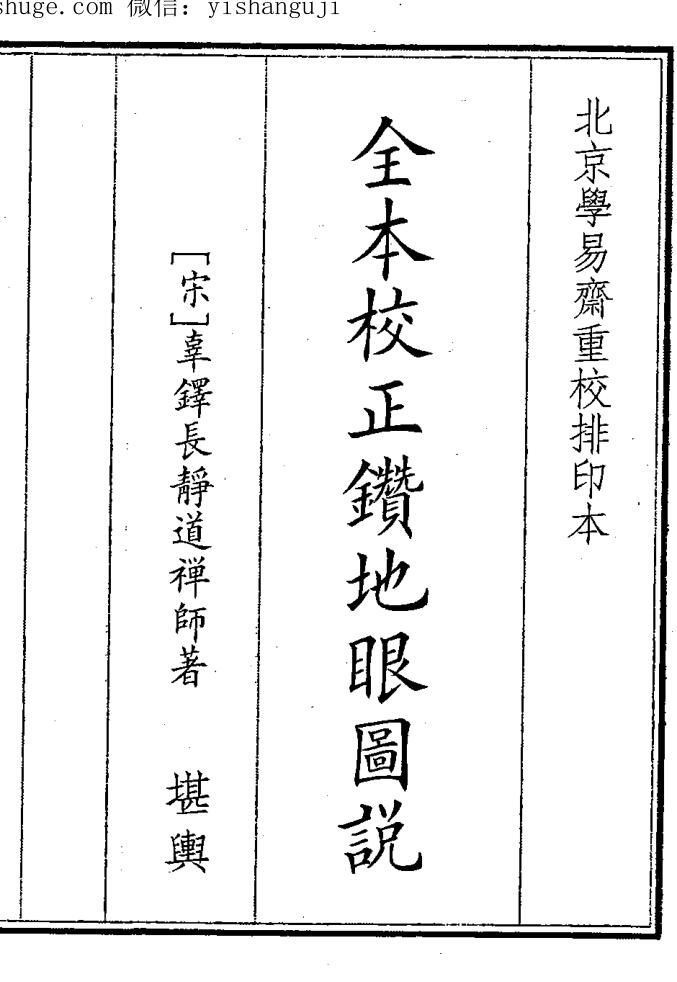 shuge.com 微信：yishanguji
北京學易齋重校排印本
全本校正鑽地眼圖説
[宋]辜鐸長靜道禅師著 堪輿